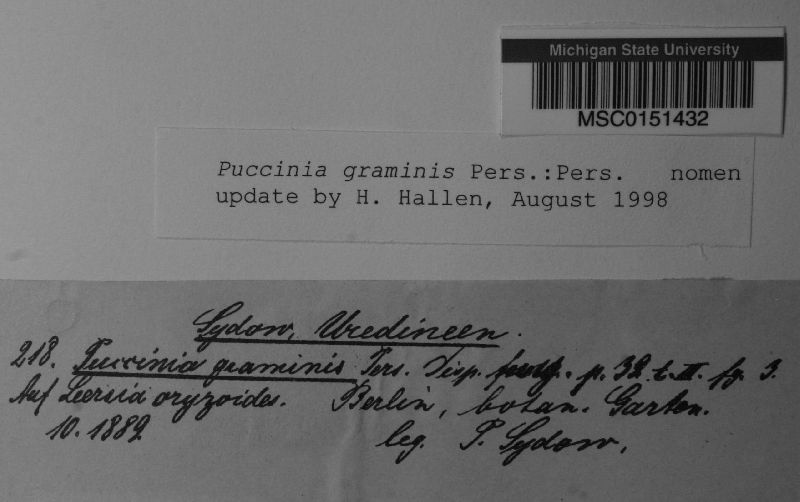 Michigan State University
MSC0151432
Puccinia graminis Pers.:Pers. nomen
update by H. Hallen, August 1998
Sydow, Uredineen.
218. Puccinia graminis Pers. Disp. fung. p. 39. t. II. fg. 3.
Auf Leersia oryzoides. Berlin, botan. Garten.
10. 1889 leg. P. Sydow.